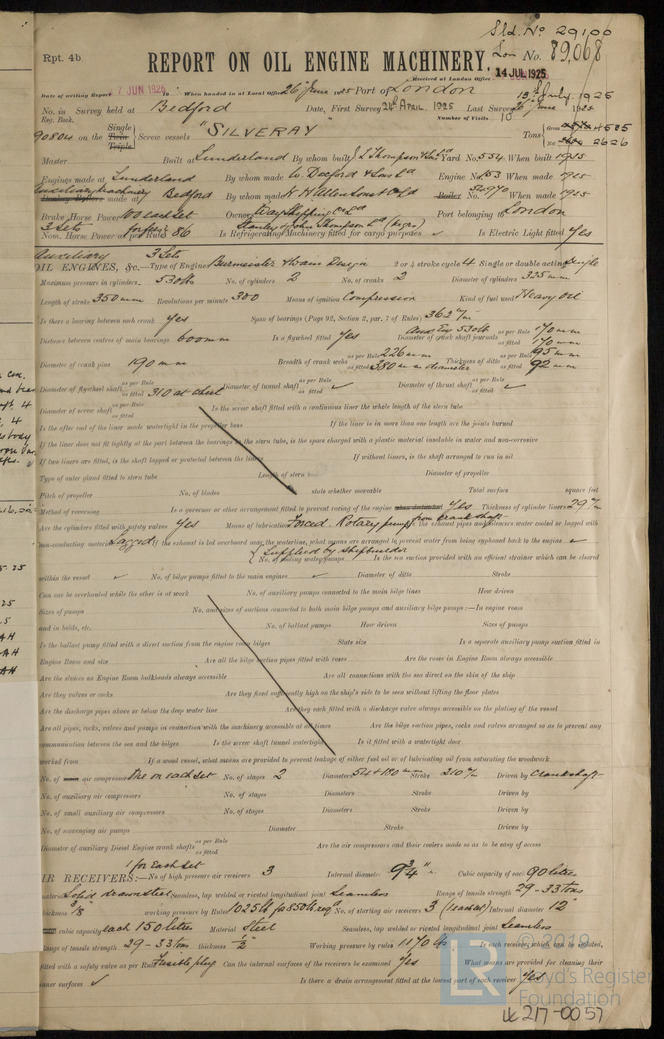 Sld. No 29100
Rpt. 4b.
REPORT ON OIL ENGINE MACHINERY.
Lon No. 89068
Received at London Office 14 JUL 1925
Date of writing Report 7 JUN 1925 When handed in at Local Office 26th June 1925 Port of London
13th July 1925
No. in Survey held at Bedford Date, First Survey 24th April 1925 Last Survey 26 June 1925
Reg. Book. Number of Visits 10
90804 on the Single Twin Triple Screw vessels "SILVERAY" Tons Gross 4535 Net 2626
Master Built at Sunderland By whom built J L Thompson & Sons Ld Yard No. 554 When built 1925
Engines made at Sunderland By whom made W. Doxford & Sons Ld Engine No. 153 When made 1925
Auxiliary Machinery made at Bedford By whom made W H Allen Sons & Co Ld Boiler No. When made 1925
Brake Horse Power 60 each Set Owners Port belonging to London
3 Sets Stanley & John Thompson Ld (Mgrs)
Nom. Horse Power as per Rule 86 Is Refrigerating Machinery fitted for cargo purposes Is Electric Light fitted Yes
Auxiliary 3 Sets
OIL ENGINES, &c.—Type of Engines Burmeister & Wain Design 2 or 4 stroke cycle 4 Single or double acting Single
Maximum pressure in cylinders 530 lbs No. of cylinders 2 No. of cranks 2 Diameter of cylinders 325 mm
Length of stroke 350 mm Revolutions per minute 300 Means of ignition Compression Kind of fuel used Heavy oil
Is there a bearing between each crank Yes Span of bearings (Page 92, Section 2, par. 7 of Rules) 362 m/m
Distance between centres of main bearings 600 mm Is a flywheel fitted Yes Diameter of crank shaft journals as per Rule 170 mm as fitted 190 mm
Diameter of crank pins 190 mm Breadth of crank webs as per Rule 226 mm as fitted 380 mm diameter Thickness of ditto as per Rule 95 mm as fitted 92 mm
Diameter of flywheel shaft as per Rule as fitted 310 at chest Diameter of tunnel shaft as per Rule as fitted Diameter of thrust shaft as per Rule as fitted
Diameter of screw shaft as per Rule as fitted Is the screw shaft fitted with a continuous liner the whole length of the stern tube
Is the after end of the liner made watertight in the propeller boss If the liner is in more than one length are the joints burned
If the liner does not fit tightly at the part between the bearings in the stern tube, is the space charged with a plastic material insoluble in water and non-corrosive
If two liners are fitted, is the shaft lapped or protected between the liners If without liners, is the shaft arranged to run in oil
Type of outer gland fitted to stern tube Length of stern Diameter of propeller
Pitch of propeller No. of blades state whether moveable Total surface square feet
Method of reversing Is a governor or other arrangement fitted to prevent racing of the engine Yes Thickness of cylinder liners 29 m/m
Are the cylinders fitted with safety valves Yes Means of lubrication Forced Rotary pump from crankshaft the exhaust pipes and silencers water cooled or lagged with
non-conducting material Lagged If the exhaust is led overboard near the waterline, what means are arranged to prevent water from being syphoned back to the engine
Supplied by shipbuilder
No. of cooling water pumps Is the sea suction provided with an efficient strainer which can be cleared
within the vessel No. of bilge pumps fitted to the main engines Diameter of ditto Stroke
Can one be overhauled while the other is at work No. of auxiliary pumps connected to the main bilge lines How driven
Sizes of pumps No. and sizes of suctions connected to both main bilge pumps and auxiliary bilge pumps:—In engine room
and in holds, etc. No. of ballast pumps How driven Sizes of pumps
Is the ballast pump fitted with a direct suction from the engine room bilges State size Is a separate auxiliary pump suction fitted in
Engine Room and size Are all the bilge suction pipes fitted with roses Are the roses in Engine Room always accessible
Are the sluices on Engine Room bulkheads always accessible Are all connections with the sea direct on the skin of the ship
Are they valves or cocks Are they fixed sufficiently high on the ship's side to be seen without lifting the floor plates
Are the discharge pipes above or below the deep water line Are they each fitted with a discharge valve always accessible on the plating of the vessel
Are all pipes, cocks, valves and pumps in connection with the machinery accessible at all times Are the bilge suction pipes, cocks and valves arranged so as to prevent any
communication between the sea and the bilges Is the screw shaft tunnel watertight Is it fitted with a watertight door
worked from If a wood vessel, what means are provided to prevent leakage of either fuel oil or of lubricating oil from saturating the woodwork
No. of air compressors One on each set No. of stages 2 Diameters 54 + 180 mm Stroke 210 m/m Driven by Crankshaft
No. of auxiliary air compressors No. of stages Diameters Stroke Driven by
No. of small auxiliary air compressors No. of stages Diameters Stroke Driven by
No. of scavenging air pumps Diameter Stroke Driven by
Diameter of auxiliary Diesel Engine crank shafts as per Rule as fitted Are the air compressors and their coolers made so as to be easy of access
1 for each set
AIR RECEIVERS:—No. of high pressure air receivers 3 Internal diameter 9¾" Cubic capacity of each 90 litres
material Solid drawn steel Seamless, lap welded or riveted longitudinal joint Seamless Range of tensile strength 29-33 tons
thickness working pressure by Rules 1025 lb for 850 lb reqd No. of starting air receivers 3 (1 each set) Internal diameter 12"
cubic capacity each 150 litres Material Steel Seamless, lap welded or riveted longitudinal joint Seamless
Range of tensile strength 29-33 tons thickness ½" Working pressure by rules 1170 lb Is each receiver, which can be isolated,
fitted with a safety valve as per Rule Fusible plug Can the internal surfaces of the receivers be examined Yes What means are provided for cleaning their
inner surfaces Is there a drain arrangement fitted at the lowest part of each receiver Yes
© 2019
Lloyd's Register
Foundation
LR
UK 217-0057